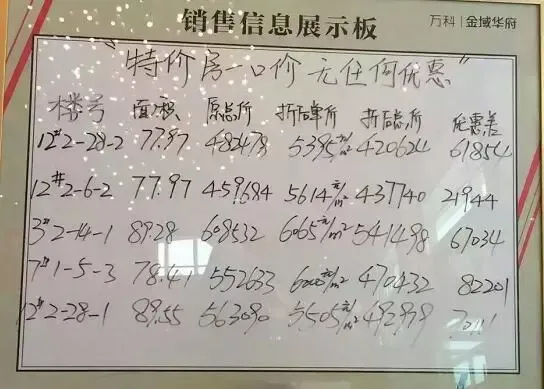 销售信息展示板
万科 | 金域华府
"特价房一口价 无任何优惠"
楼号 面积 原总价 折后单价 折后总价 优惠差
12#2-28-2 77.97 482478 5395元/m² 420624 61854
12#2-6-2 77.97 459684 5614元/m² 437740 21944
3#2-14-1 89.28 608532 6065元/m² 541498 67034
7#1-5-3 78.41 552633 6000元/m² 470432 82201
12#2-28-1 89.55 563090 5505元/m² 492979 70111